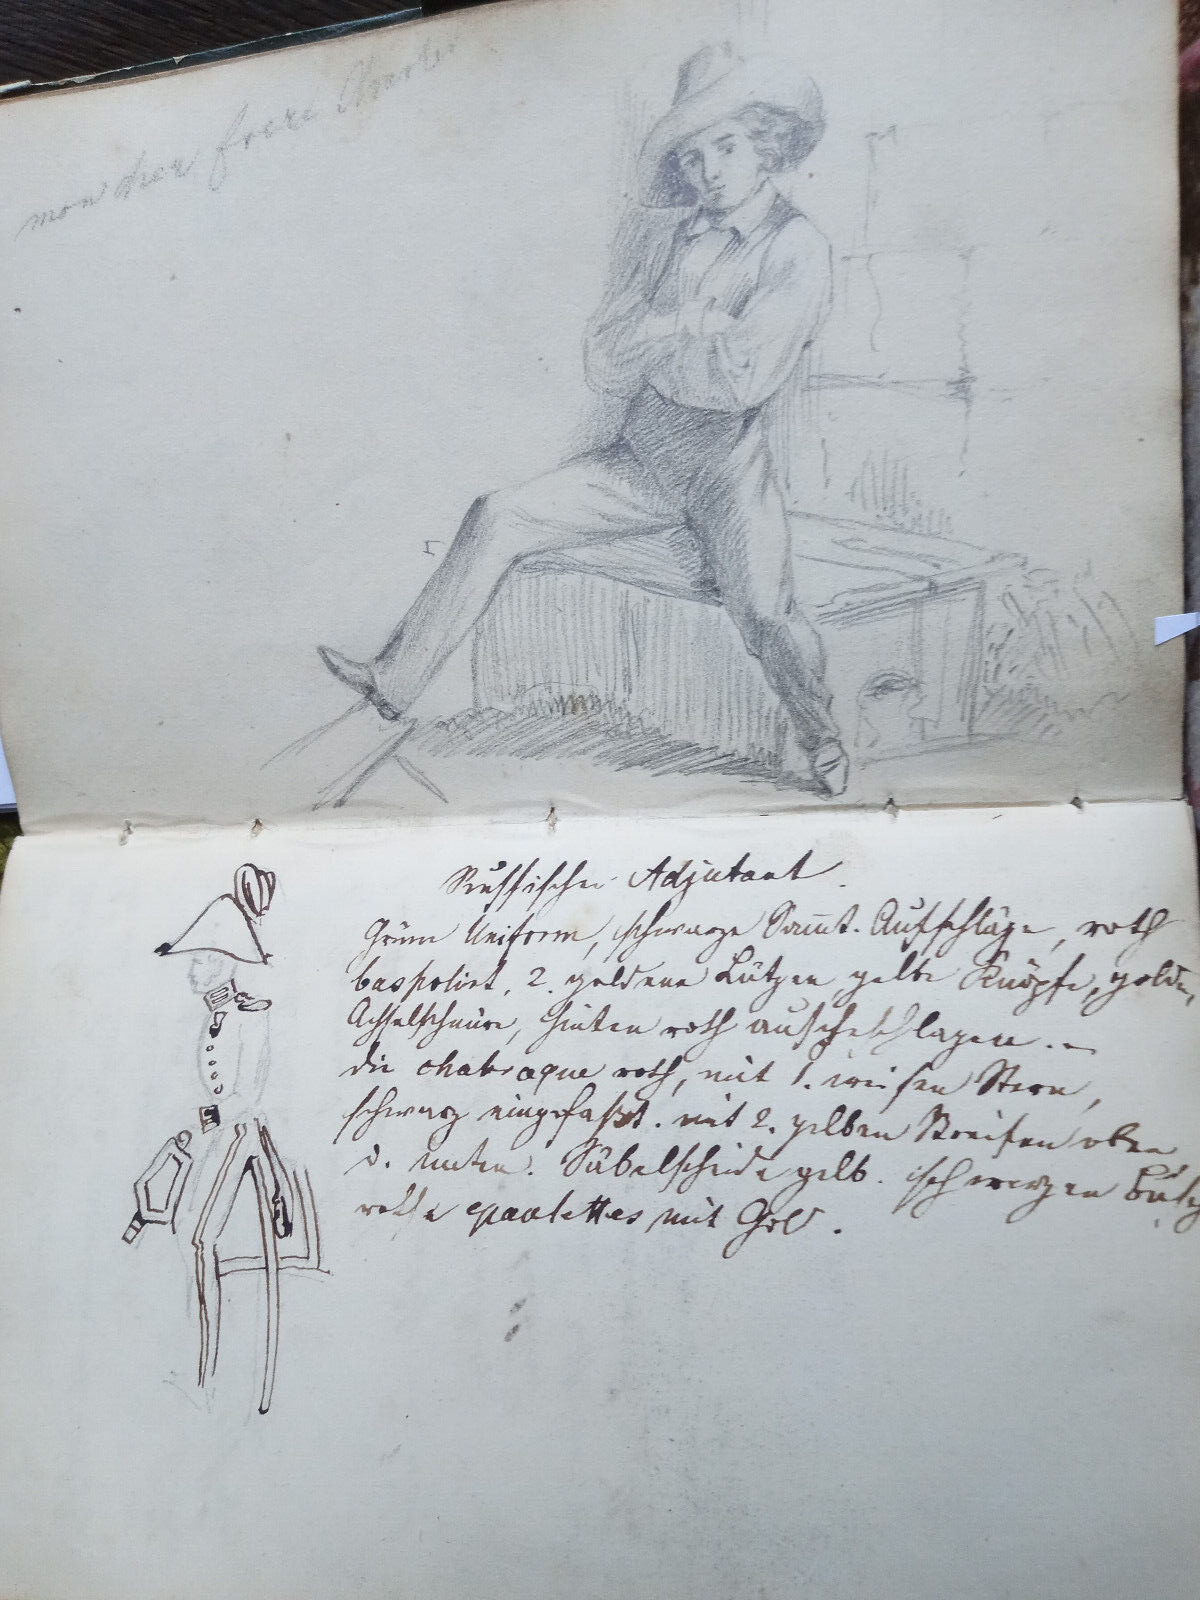 mon cher frere Charles
Russischer Adjutant.
Grüne Uniform, schwarze Sammt. Aufschläge, roth
baspolirt, 2. goldene Lützen gelbe Knöpfe, golde,
Achselschnüre, hinten roth aufgeschlagen. –
die chabraque roth, mit 1. weisen Stern,
schwarz eingefasst. mit 2. gelben Streifen oben
u. unten. Säbelscheide gelb. schwarzen
rothe epaulettes mit Gold.